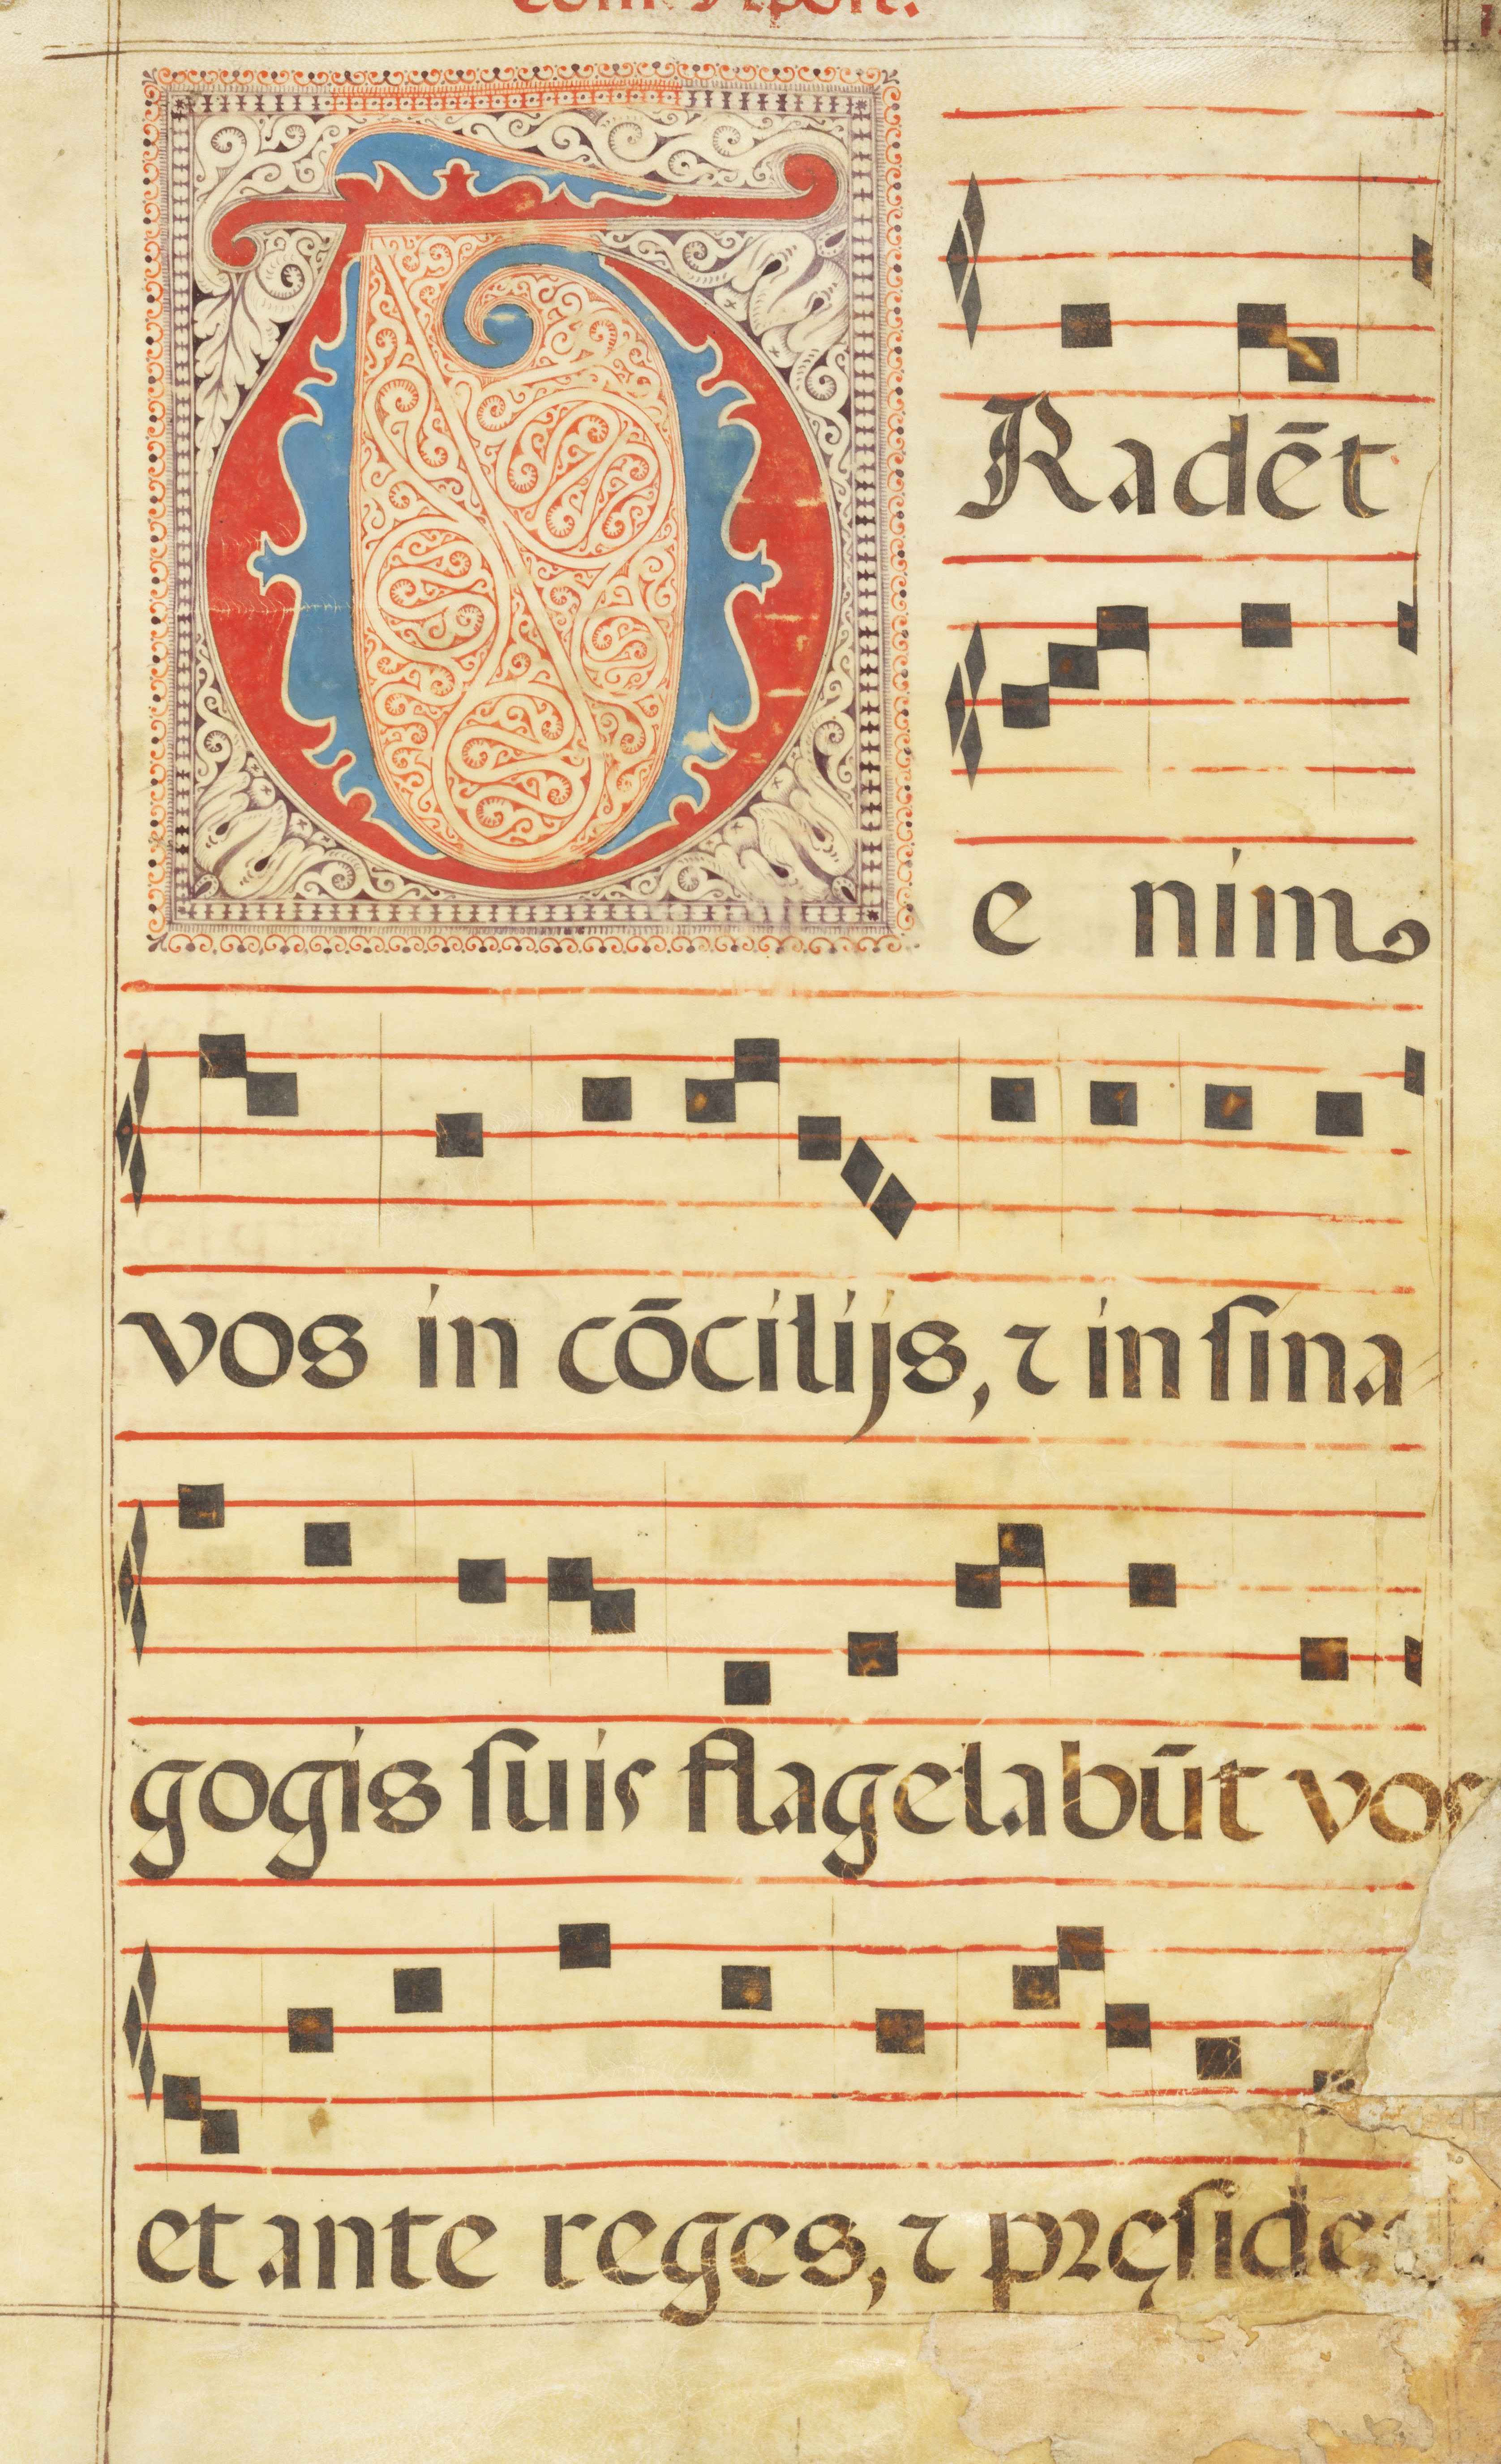 T
Radēt
e nim
vos in cōcilijs, ⁊ in ſina
gogis ſuis flagelabūt vos
et ante reges, ⁊ pręſides